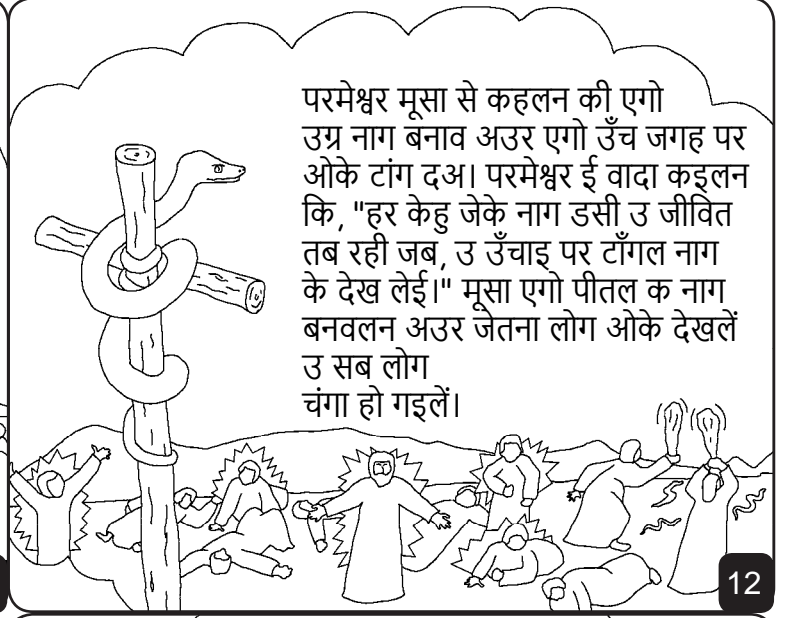 परमेश्वर मूसा से कहलन की एगो
उग्र नाग बनाव अउर एगो उँच जगह पर
ओके टांग दअ। परमेश्वर ई वादा कइलन
कि, "हर केहु जेके नाग डसी उ जीवित
तब रही जब, उ उँचाइ पर टाँगल नाग
के देख लेई।" मूसा एगो पीतल क नाग
बनवलन अउर जेतना लोग ओके देखलें
उ सब लोग
चंगा हो गइलें।
12